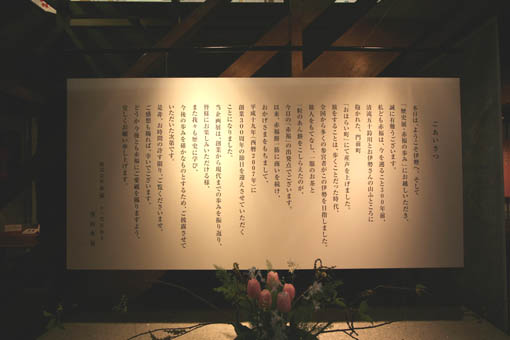 ごあいさつ
本日は、ようこそ伊勢へ、そして
「歴史展・赤福の歩み」にお越しいただき、
誠に有難うございます。
私ども赤福は、今を遡ること300年前、
清流五十鈴川とお伊勢さんの山ふところに
抱かれた、門前町
「おはらい町」にて産声を上げました。
旅をすることは、歩くことだった時代、
全国から多くの参宮者がこの伊勢を目指しました。
旅人をもてなし、一服のお茶と
一粒のあん餅をこしらえたのが、
今日の「赤福」の出発点でございます。
以来、赤福餅一筋に商いを続け、
おかげさまをもちまして、
平成十九年(西暦2007年)に
創業300周年の節目を迎えさせていただく
ことになりました。
当企画展は、創業から現代までの歩みを振り返り、
皆様にお楽しみいただける様、
また我々も歴史に学び、
今後の歩みを確かなものとするため、ご披露させて
いただいた次第です。
是非、お時間の許す限り、ご覧くださいませ。
ご感想も賜れば、幸いでございます。
どうか今後とも赤福にご愛顧を賜りますよう、
宜しくお願い申し上げます。